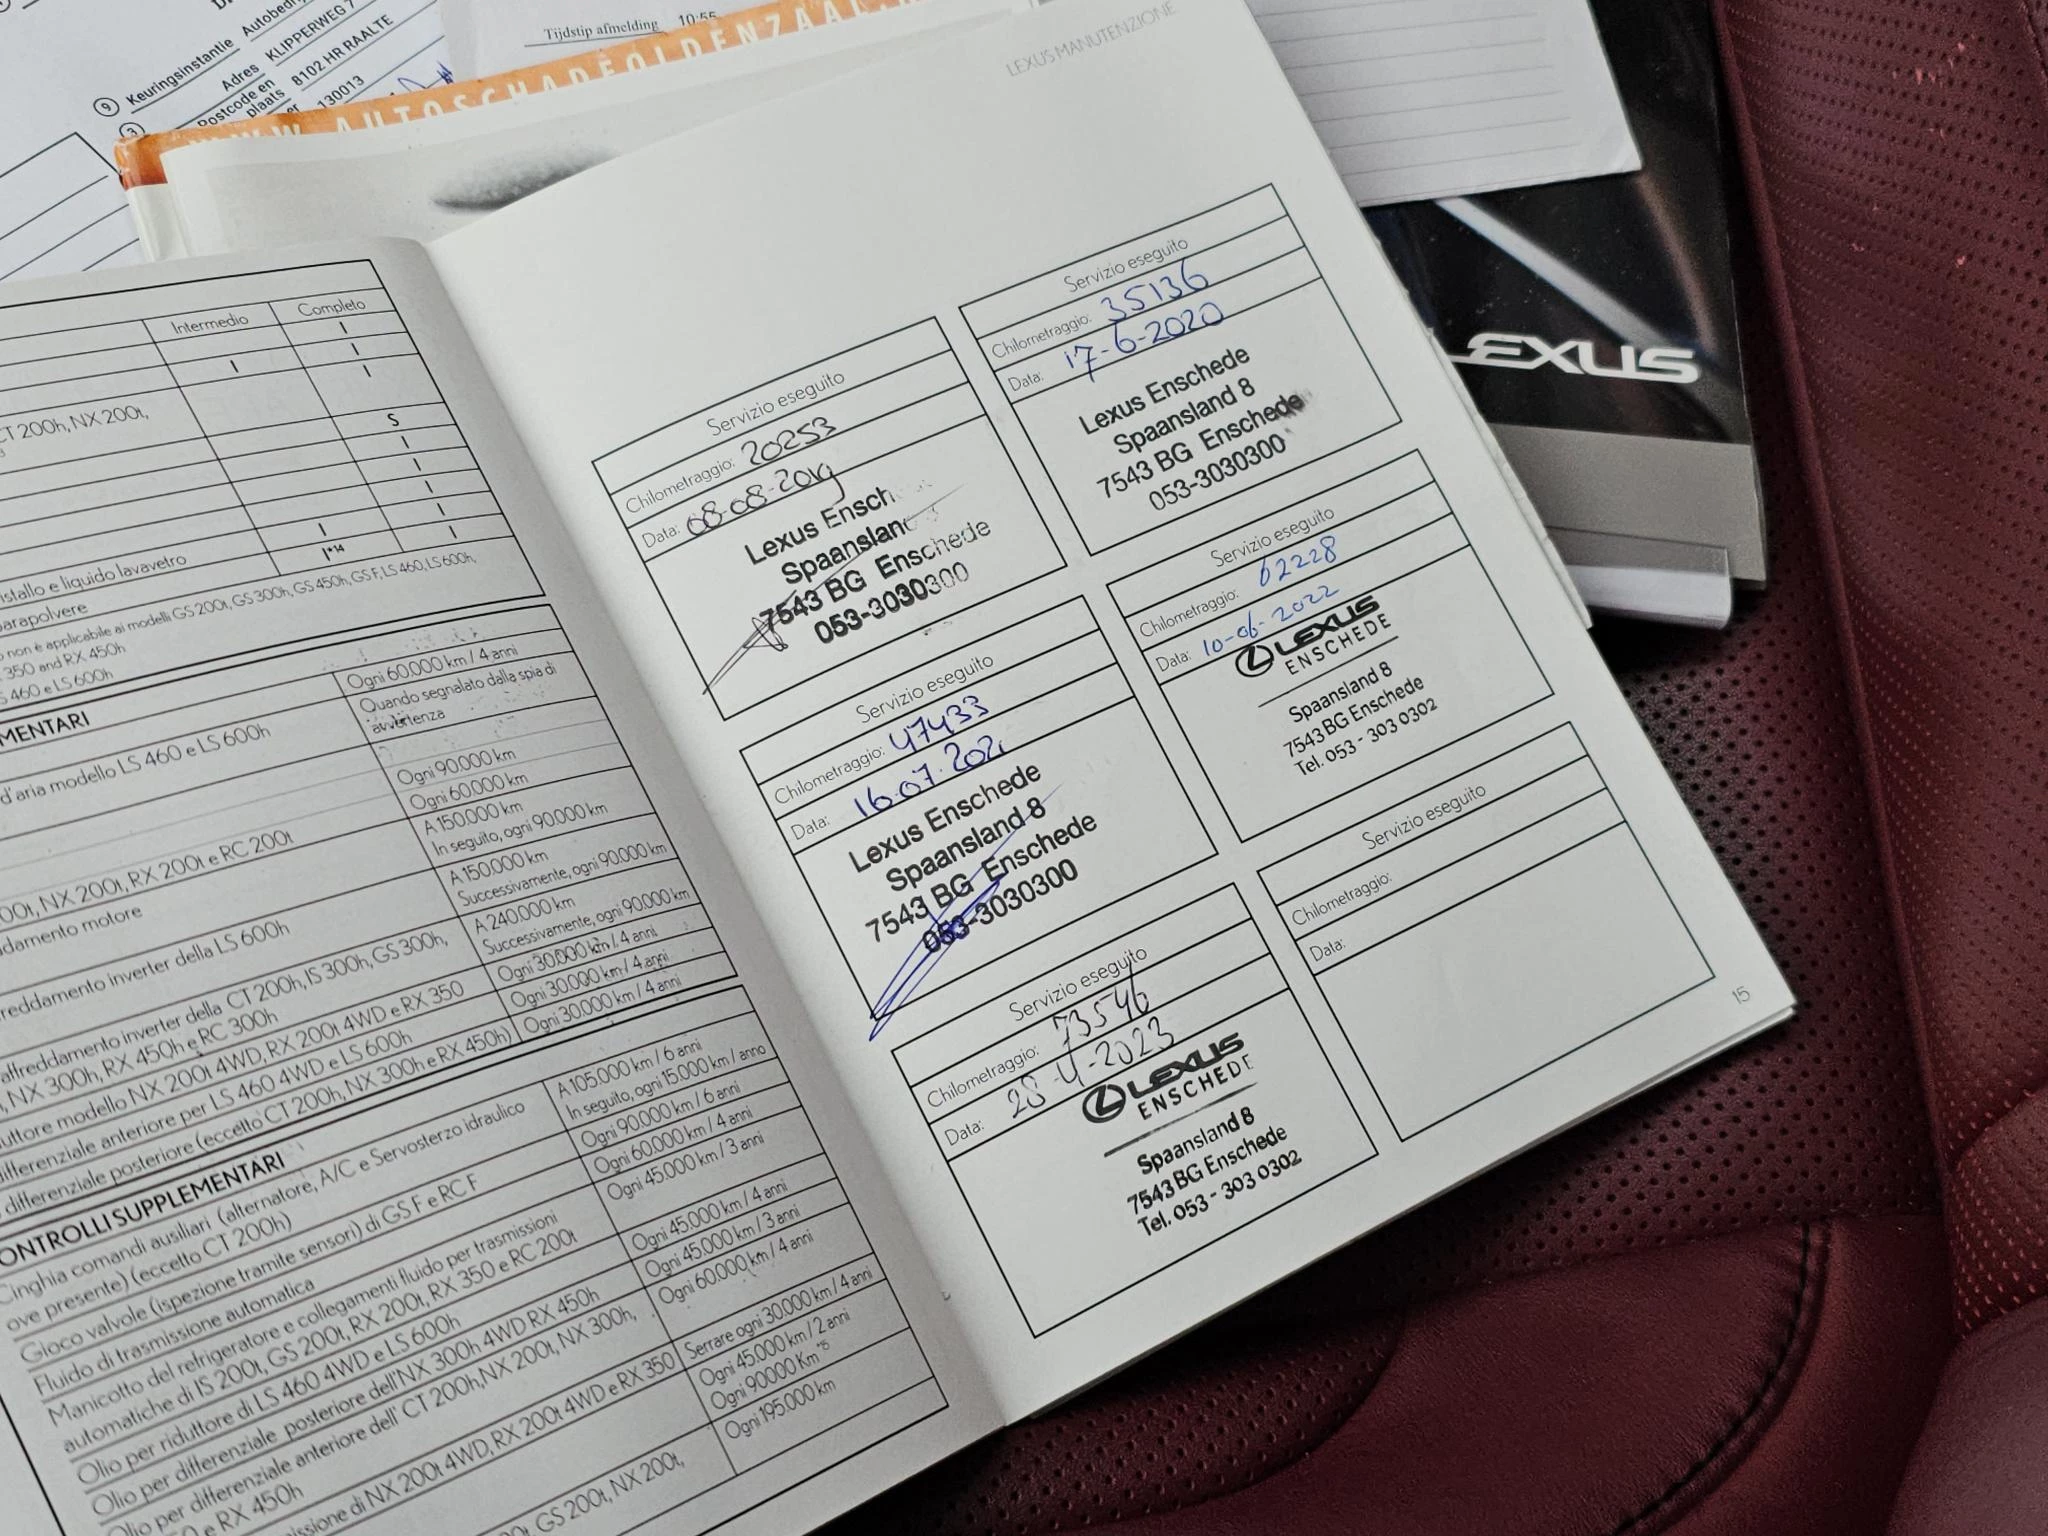 Tijdstip afmelding 10:55
9 Keuringsinstantie Autobedrij
Adres KLIPPERWEG 7
Postcode en plaats 8102 HR RAALTE
130013
WWW.AUTOSCHADEOLDENZAAL.
LEXUS MANUTENZIONE
LEXUS
Intermedio Completo
I
I
I I
CT 200h, NX 200t,
S
I
I
I
istallo e liquido lavavetro I I
parapolvere I*14 I
o non è applicabile ai modelli GS 200t, GS 300h, GS 450h, GS F, LS 460, LS 600h,
350 and RX 450h
S 460 e LS 600h
MENTARI
Ogni 60.000 km / 4 anni
Quando segnalato dalla spia di
avvertenza
d'aria modello LS 460 e LS 600h
Ogni 90.000 km
Ogni 60.000 km
00t, NX 200t, RX 200t e RC 200t
A 150.000 km
In seguito, ogni 90.000 km
damento motore
A 150.000 km
Successivamente, ogni 90.000 km
freddamento inverter della LS 600h
A 240.000 km
Successivamente, ogni 90.000 km
affreddamento inverter della CT 200h, IS 300h, GS 300h,
, NX 300h, RX 450h e RC 300h
Ogni 30.000 km / 4 anni
duttore modello NX 200t 4WD, RX 200t 4WD e RX 350
Ogni 30.000 km / 4 anni
differenziale anteriore per LS 460 4WD e LS 600h
Ogni 30.000 km / 4 anni
differenziale posteriore (eccetto CT 200h, NX 300h e RX 450h)
ONTROLLI SUPPLEMENTARI
Cinghia comandi ausiliari (alternatore, A/C e Servosterzo idraulico
ove presente) (eccetto CT 200h)
A 105.000 km / 6 anni
In seguito, ogni 15.000 km / anno
Gioco valvole (ispezione tramite sensori) di GS F e RC F
Ogni 90.000 km / 6 anni
Fluido di trasmissione automatica
Ogni 60.000 km / 4 anni
Manicotto del refrigeratore e collegamenti fluido per trasmissioni
automatiche di IS 200t, GS 200t, RX 200t, RX 350 e RC 200t
Ogni 45.000 km / 3 anni
Olio per riduttore di LS 460 4WD e LS 600h
Ogni 45.000 km / 4 anni
Olio per differenziale posteriore dell'NX 300h 4WD RX 450h
Ogni 45.000 km / 3 anni
Olio per differenziale anteriore dell' CT 200h, NX 200t, NX 300h,
e RX 450h
Ogni 60.000 km / 4 anni
missione di NX 200t 4WD, RX 200t 4WD e RX 350
Serrare ogni 30.000 km / 4 anni
Ogni 45.000 km / 2 anni
Ogni 90000 Km*5
Ogni 195.000 km
0t, GS 200t, NX 200t,
Servizio eseguito
Chilometraggio: 20253
Data: 08-08-2019
Lexus Ensch
Spaansland
7543 BG Enschede
053-3030300
Servizio eseguito
Chilometraggio: 35136
Data: 17-6-2020
Lexus Enschede
Spaansland 8
7543 BG Enschede
053-3030300
Servizio eseguito
Chilometraggio: 47433
Data: 16-07-2021
Lexus Enschede
Spaansland 8
7543 BG Enschede
053-3030300
Servizio eseguito
Chilometraggio: 62228
Data: 10-06-2022
LEXUS
ENSCHEDE
Spaansland 8
7543 BG Enschede
Tel. 053 - 303 0302
Servizio eseguito
Chilometraggio: 73546
Data: 28-4-2023
LEXUS
ENSCHEDE
Spaansland 8
7543 BG Enschede
Tel. 053 - 303 0302
Servizio eseguito
Chilometraggio:
Data:
15